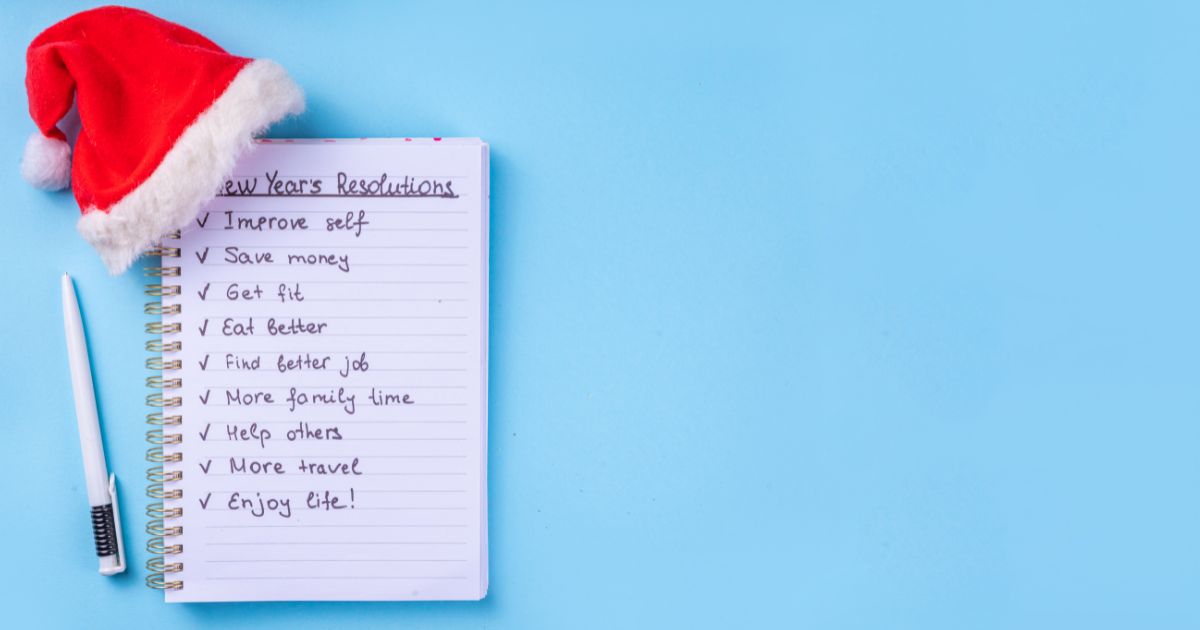 ew Year's Resolutions
✓ Improve self
✓ Save money
✓ Get fit
✓ Eat better
✓ Find better job
✓ More family time
✓ Help others
✓ More travel
✓ Enjoy life!